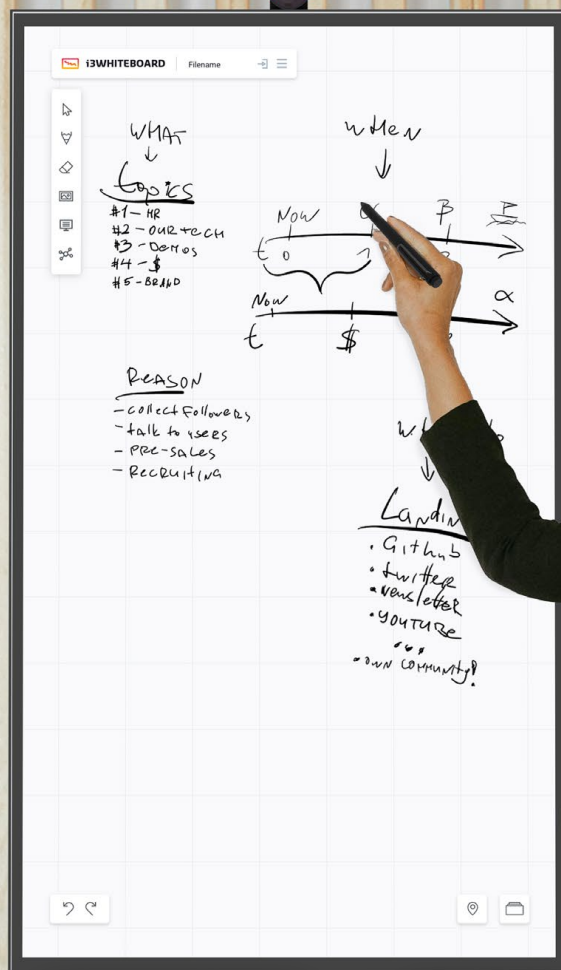 i3WHITEBOARD
Filename
WHAT
↓
topics
#1 - HR
#2 - OUR tECH
#3 - DEMOS
#4 - $
#5 - BRAND
WHEN
↓
NOW β
t 0
NOW α
t $
REASON
- collect Followers
- talk to users
- PRE-SALES
- RECRUITING
↓
• GitHub
• twitter
• Newsletter
• YOUTUBE
...
• OWN COMMUNITY!